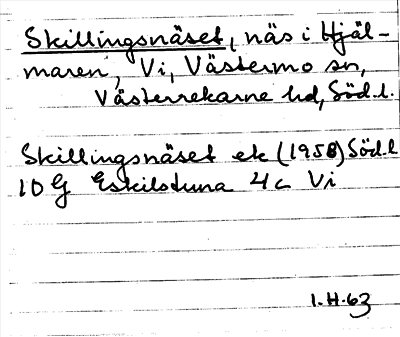 Skillingsnäset, näs i Hjäl-
maren, Vi, Västermo sn,
Västerrekarne hd, Söd.l.
Skillingsnäset ek (1958) Söd.l
10 G Eskilstuna 4 c Vi
1.H.63